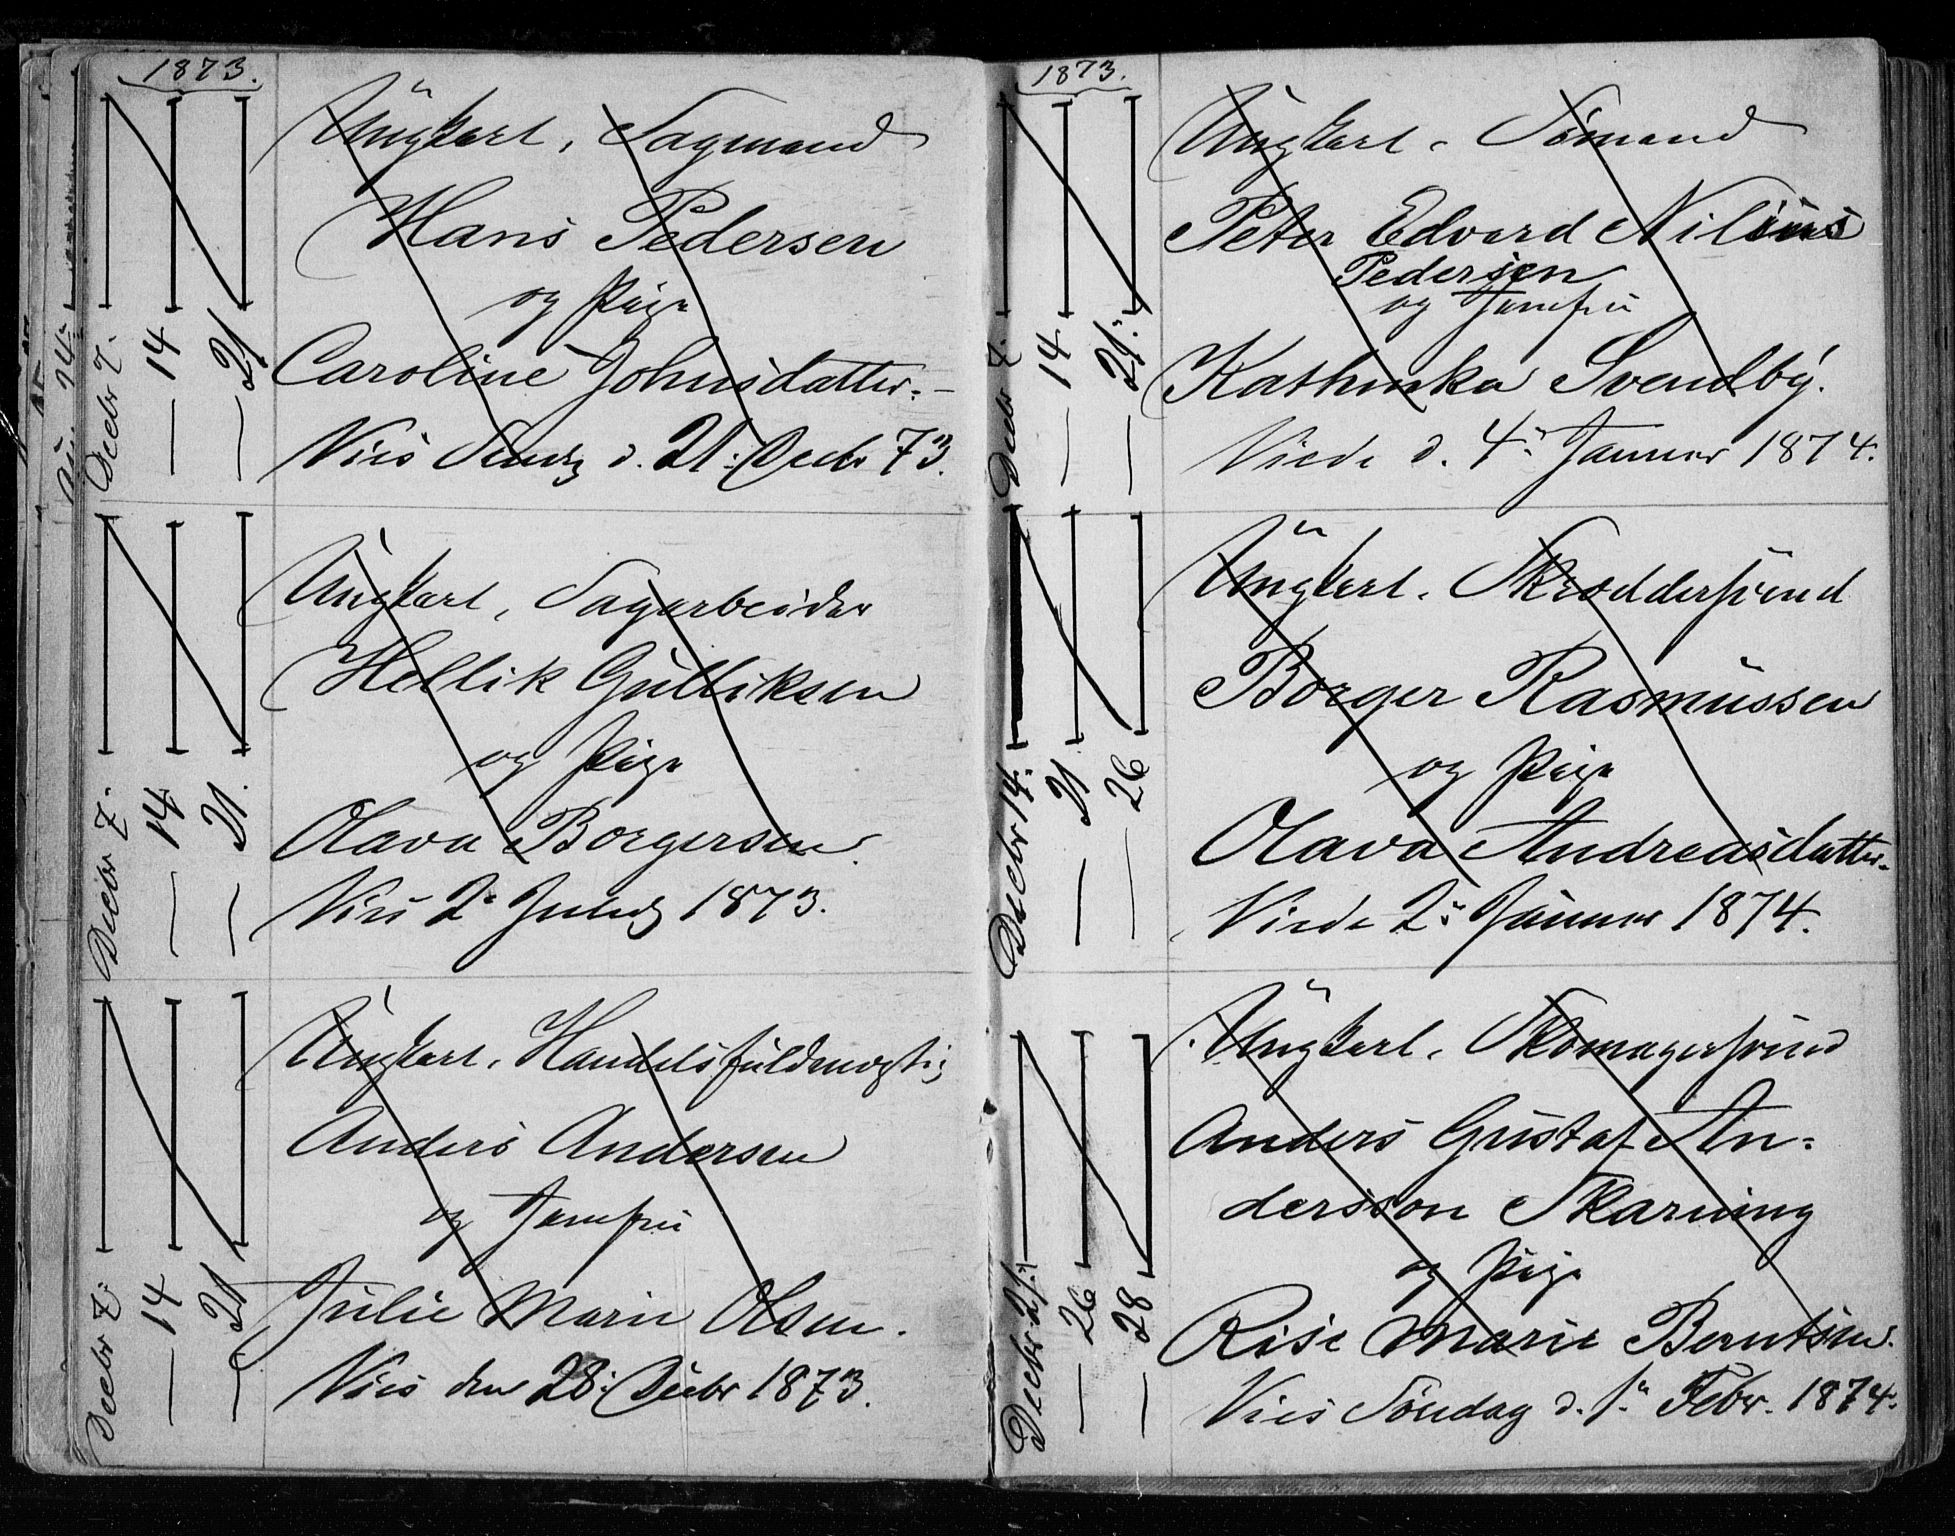 1873.
Decbr 7.
— 14
— 21
Ungkarl, Sagmand
Hans Pedersen
og Pige
Caroline Johnsdatter. –
Vies Søndg d. 21. Decbr 73.
Decbr 7.
— 14
— 21.
Ungkarl, Sagarbeider
Hellik Gulliksen
og Pige
Olava Borgersen.
Vies 2. Juledg 1873.
Decbr 7.
— 14
— 21
Ungkarl, Handelsfuldmægtig
Anders Andersen
og Jomfru
Julie Marie Olsen.
Vies den 28. Decbr 1873.
1873.
Decbr 7.
— 14
— 21.
Ungkarl. Sømand
Peter Edvard
Pedersen
og Jomfru
Kathinka Svendby.
Viede d. 4. Januar 1874.
Decbr 14.
— 21
— 26
Ungkarl. Skræddersvend
Borger Rasmussen
og Pige
Olava Andreasdatter.
Viede 2. Januar 1874.
Decbr 21.
— 26
— 28
Ungkarl. Skomagersvend
Anders Gustaf An=
dersson Skarning
og Pige
Rise Marie Berntsen.
Vies Søndag d. 1. Febr. 1874.